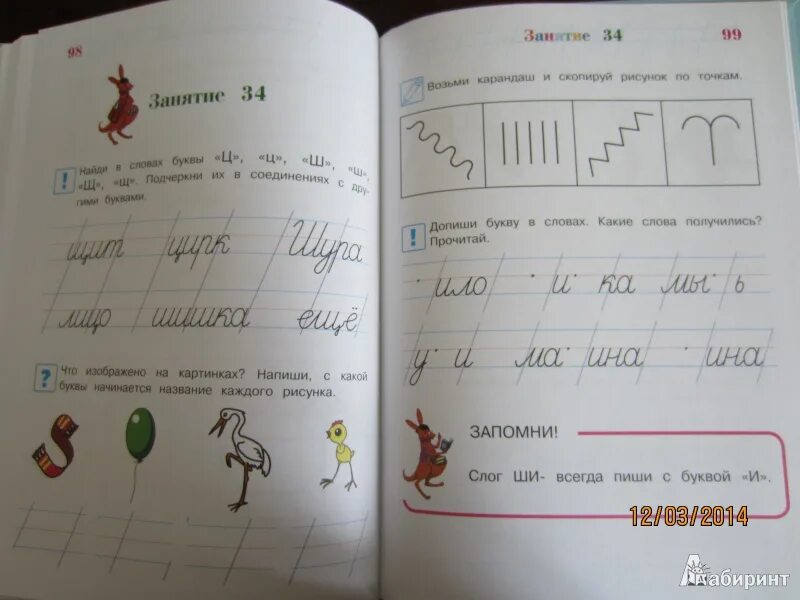 98
Занятие 34
Найди в словах буквы «Ц», «ц», «Ш», «ш»,
«Щ», «щ». Подчеркни их в соединениях с дру-
гими буквами.
щит цирк Шура
лицо шишка ещё
Что изображено на картинках? Напиши, с какой
буквы начинается название каждого рисунка.
Занятие 34
99
Возьми карандаш и скопируй рисунок по точкам.
Допиши букву в словах. Какие слова получились?
Прочитай.
·ило ·и·ка мы·ь
у·и ма·ина ·ина
ЗАПОМНИ!
Слог ШИ- всегда пиши с буквой «И».
12/03/2014
Лабиринт